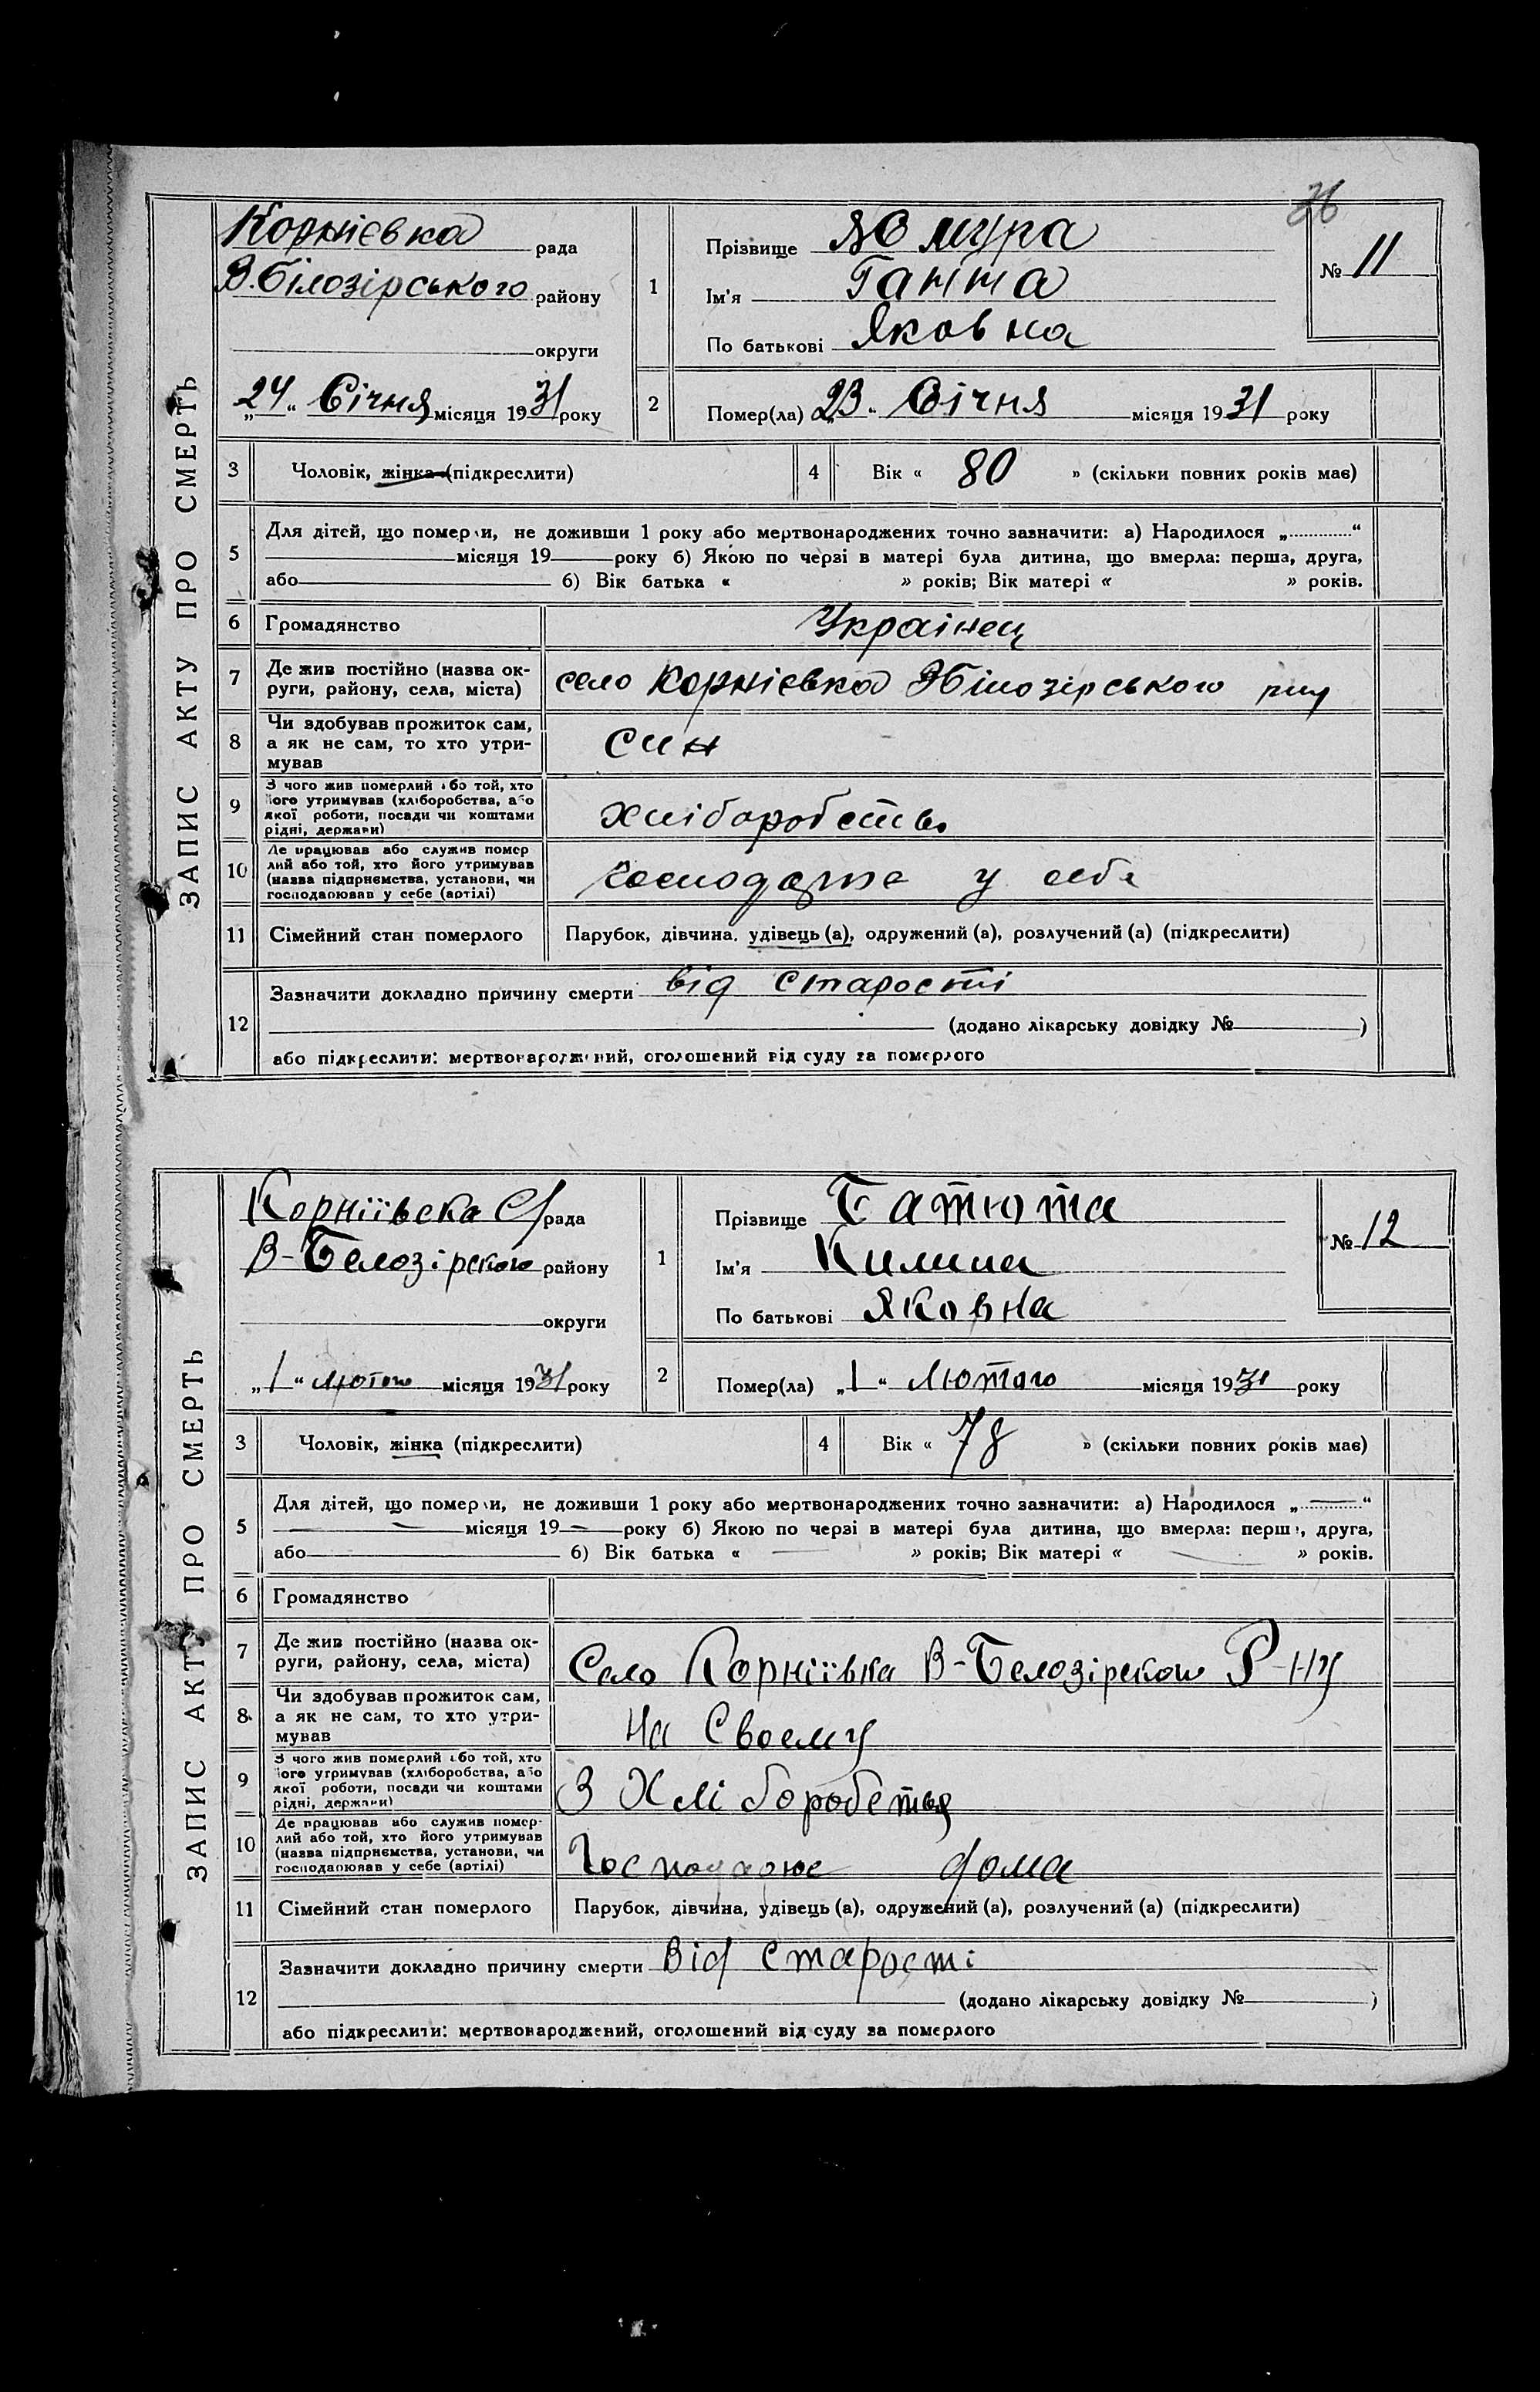 ЗАПИС АКТУ ПРО СМЕРТЬ
Корнієвка рада
В.Білозірського району
округи
„24“ Січня місяця 1931 року
1
Прізвище
Ім'я Ганна
По батькові Яковна
№ 11
2
Помер(ла) „23“ Січня місяця 1931 року
3 Чоловік, жінка (підкреслити)
4 Вік « 80 » (скільки повних років має)
5 Для дітей, що померли, не доживши 1 року або мертвонароджених точно зазначити: а) Народилося „ “
місяця 19 року б) Якою по черзі в матері була дитина, що вмерла: перша, друга,
або б) Вік батька « » років; Вік матері « » років.
6 Громадянство Украінец
7 Де жив постійно (назва ок-
руги, району, села, міста) село Корнієвка Вбілозірського рну
8 Чи здобував прожиток сам,
а як не сам, то хто утри-
мував син
9 З чого жив померлий або той, хто
його утримував (хліборобства, або
якої роботи, посади чи коштами
рідні, держави) хліборобство
10 Де працював або служив помер
лий або той, хто його утримував
(назва підприємства, установи, чи
господарював у себе (артілі) у себе
11 Сімейний стан померлого Парубок, дівчина, удівець (а), одружений (а), розлучений (а) (підкреслити)
12 Зазначити докладно причину смерти від старості
(додано лікарську довідку № )
або підкреслити: мертвонароджений, оголошений від суду за померлого
ЗАПИС АКТУ ПРО СМЕРТЬ
Корніївска С/рада
В-Белозірского району
округи
„1“ лютого місяця 1931 року
1
Прізвище Батюта
Ім'я Килина
По батькові Яковна
№ 12
2
Помер(ла) „1“ Лютого місяця 1931 року
3 Чоловік, жінка (підкреслити)
4 Вік « 78 » (скільки повних років має)
5 Для дітей, що померли, не доживши 1 року або мертвонароджених точно зазначити: а) Народилося „ — “
— місяця 19— року б) Якою по черзі в матері була дитина, що вмерла: перша, друга,
або б) Вік батька « — » років; Вік матері « — » років.
6 Громадянство
7 Де жив постійно (назва ок-
руги, району, села, міста) Село Корніївка В-Белозірского Р-ну
8 Чи здобував прожиток сам,
а як не сам, то хто утри-
мував на Своему
9 З чого жив померлий або той, хто
його утримував (хліборобства, або
якої роботи, посади чи коштами
рідні, держави) З Хліборобства
10 Де працював або служив помер-
лий або той, хто його утримував
(назва підприємства, установи, чи
господарював у себе (артілі) Господарює дома
11 Сімейний стан померлого Парубок, дівчина, удівець (а), одружений (а), розлучений (а) (підкреслити)
12 Зазначити докладно причину смерти Від Старості
(додано лікарську довідку № )
або підкреслити: мертвонароджений, оголошений від суду за померлого